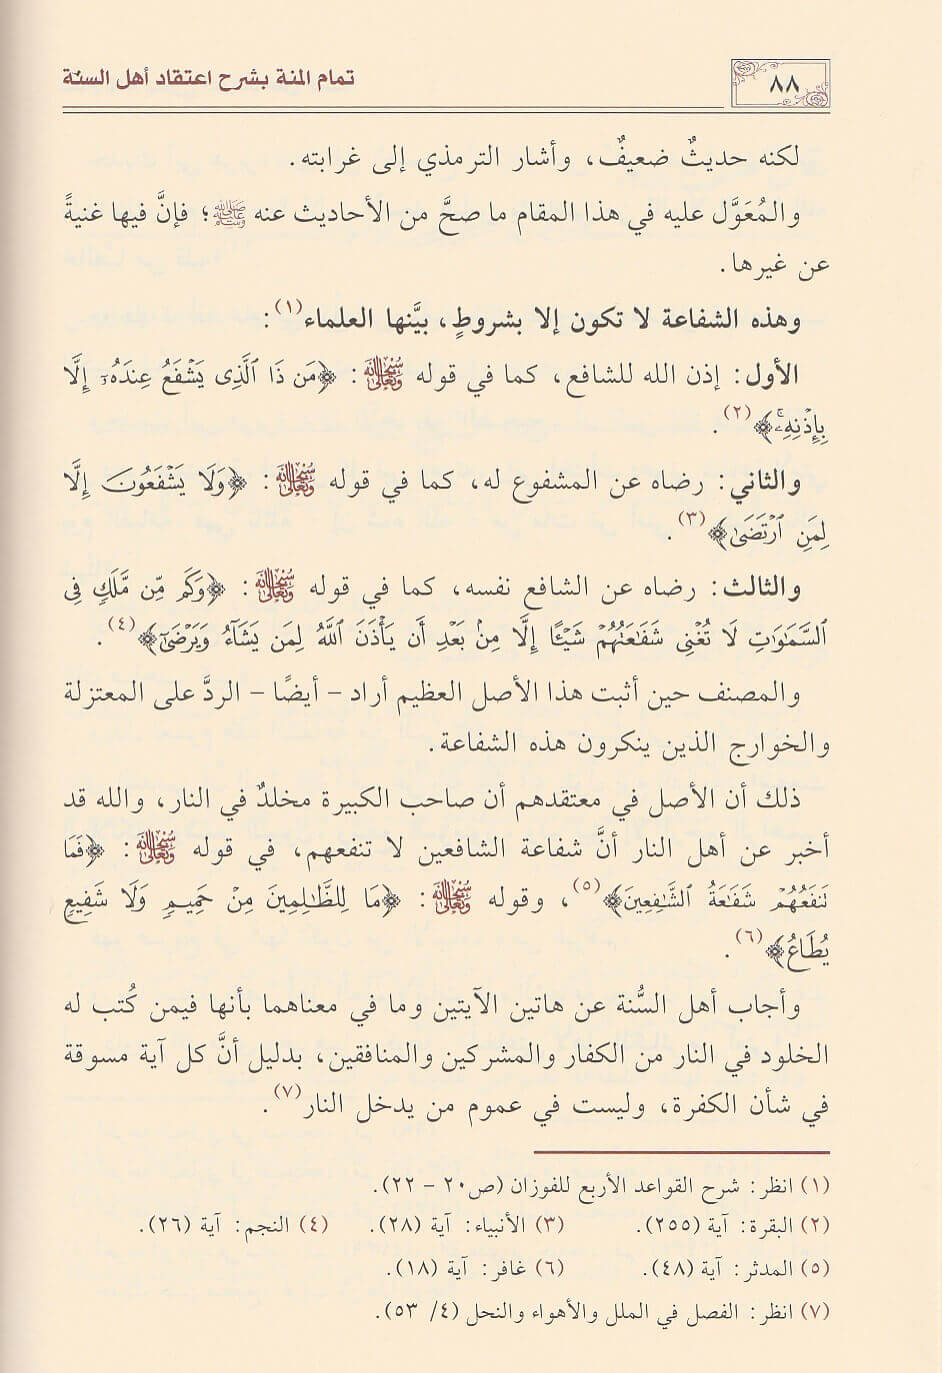 ٨٨
تمام المنة بشرح اعتقاد أهل السنة
لكنه حديثٌ ضعيفٌ، وأشار الترمذي إلى غرابته.
والمُعَوَّل عليه في هذا المقام ما صحَّ من الأحاديث عنه ﷺ؛ فإنَّ فيها غنيةً
عن غيرها.
وهذه الشفاعة لا تكون إلا بشروطٍ، بيَّنها العلماء(١):
الأول: إذن الله للشافع، كما في قوله سُبْحَانَهُ وَتَعَالَى: ﴿مَن ذَا ٱلَّذِى يَشْفَعُ عِندَهُۥٓ إِلَّا
بِإِذْنِهِۦ﴾(٢).
والثاني: رضاه عن المشفوع له، كما في قوله سُبْحَانَهُ وَتَعَالَى: ﴿وَلَا يَشْفَعُونَ إِلَّا
لِمَنِ ٱرْتَضَىٰ﴾(٣).
والثالث: رضاه عن الشافع نفسه، كما في قوله سُبْحَانَهُ وَتَعَالَى: ﴿وَكَم مِّن مَّلَكٍ فِى
ٱلسَّمَٰوَٰتِ لَا تُغْنِى شَفَٰعَتُهُمْ شَيْـًٔا إِلَّا مِنۢ بَعْدِ أَن يَأْذَنَ ٱللَّهُ لِمَن يَشَآءُ وَيَرْضَىٰٓ﴾(٤).
والمصنف حين أثبت هذا الأصل العظيم أراد - أيضًا - الردَّ على المعتزلة
والخوارج الذين ينكرون هذه الشفاعة.
ذلك أن الأصل في معتقدهم أن صاحب الكبيرة مخلدٌ في النار، والله قد
أخبر عن أهل النار أنَّ شفاعة الشافعين لا تنفعهم، في قوله سُبْحَانَهُ وَتَعَالَى: ﴿فَمَا
تَنفَعُهُمْ شَفَٰعَةُ ٱلشَّٰفِعِينَ﴾(٥)، وقوله سُبْحَانَهُ وَتَعَالَى: ﴿مَا لِلظَّٰلِمِينَ مِنْ حَمِيمٍ وَلَا شَفِيعٍ
يُطَاعُ﴾(٦).
وأجاب أهل السُّنة عن هاتين الآيتين وما في معناهما بأنها فيمن كُتب له
الخلود في النار من الكفار والمشركين والمنافقين، بدليل أنَّ كل آية مسوقة
في شأن الكفرة، وليست في عموم من يدخل النار(٧).
(١) انظر: شرح القواعد الأربع للفوزان (ص٢٠ - ٢٢).
(٢) البقرة: آية (٢٥٥). (٣) الأنبياء: آية (٢٨). (٤) النجم: آية (٢٦).
(٥) المدثر: آية (٤٨). (٦) غافر: آية (١٨).
(٧) انظر: الفصل في الملل والأهواء والنحل (٤/ ٥٣).